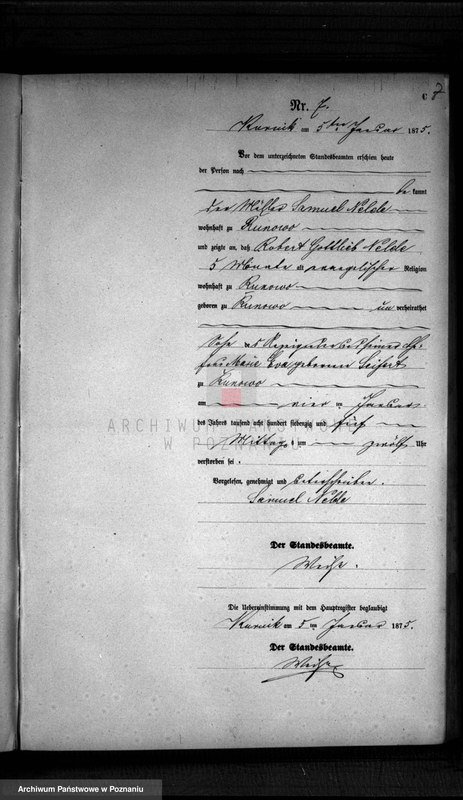 C 7
Nr. 7.
Kurnik am 5ten Januar 1875.
Vor dem unterzeichneten Standesbeamten erschien heute
der Person nach
be kannt
der Müller Samuel Nelde
wohnhaft zu Runowo
und zeigte an, daß Robert Gottlieb Nelde
5 Monate alt evangelischer Religion
wohnhaft zu Runowo
geboren zu Runowo un verheirathet
Sohn des
frau Marie Eva geborenen Seifert
zu Runowo
am vier ten Januar
des Jahres tausend acht hundert siebenzig und fünf
Mittags um zwölf Uhr
verstorben sei.
Vorgelesen, genehmigt und unterschrieben.
Samuel Nelde
Der Standesbeamte.
Die Uebereinstimmung mit dem Hauptregister beglaubigt
Kurnik am 5 ten Januar 1875.
Der Standesbeamte.
ARCHIWUM PAŃSTWOWE
W POZNANIU
Archiwum Państwowe w Poznaniu